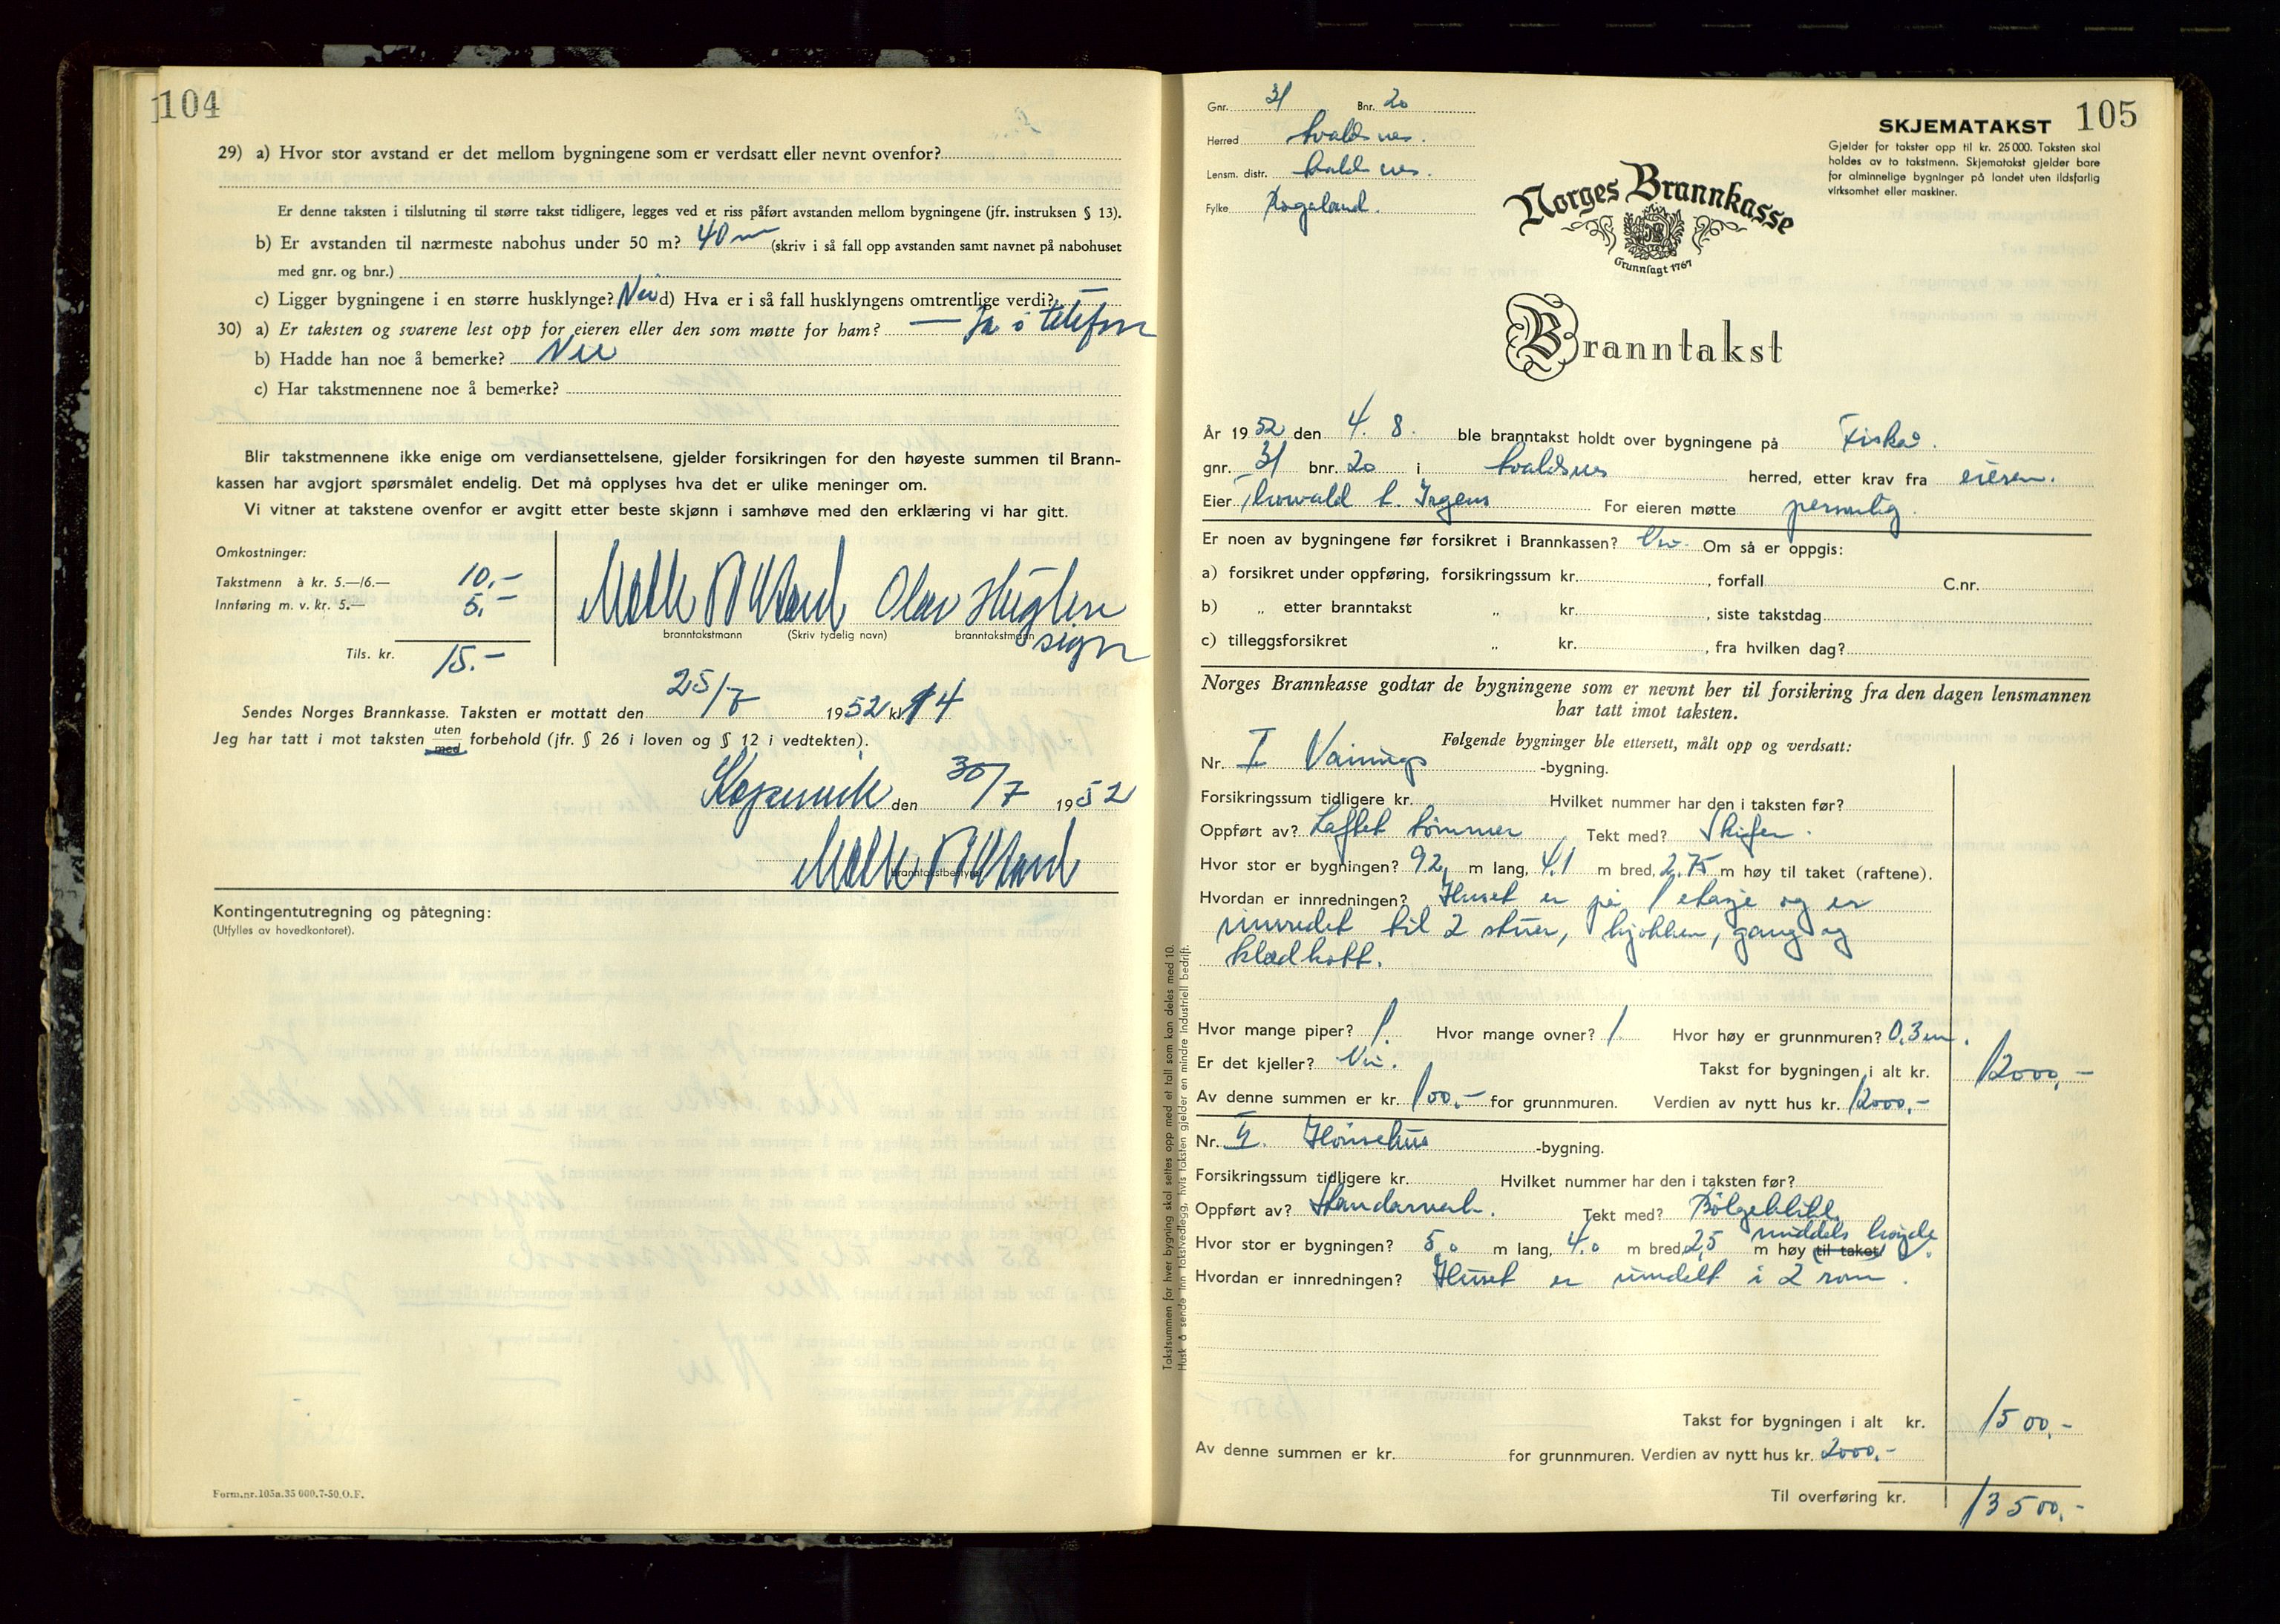 104
29) a) Hvor stor avstand er det mellom bygningene som er verdsatt eller nevnt ovenfor?
Er denne taksten i tilslutning til større takst tidligere, legges ved et riss påført avstanden mellom bygningene (jfr. instruksen § 13).
b) Er avstanden til nærmeste nabohus under 50 m? 40 m (skriv i så fall opp avstanden samt navnet på nabohuset
med gnr. og bnr.)
c) Ligger bygningene i en større husklynge? Nei d) Hva er i så fall husklyngens omtrentlige verdi? —
30) a) Er taksten og svarene lest opp for eieren eller den som møtte for ham? — Ja i telefon
b) Hadde han noe å bemerke? Nei
c) Har takstmennene noe å bemerke?
Blir takstmennene ikke enige om verdiansettelsene, gjelder forsikringen for den høyeste summen til Brann-
kassen har avgjort spørsmålet endelig. Det må opplyses hva det er ulike meninger om.
Vi vitner at takstene ovenfor er avgitt etter beste skjønn i samhøve med den erklæring vi har gitt.
Omkostninger:
Takstmenn à kr. 5.—/6.— 10.—
Innføring m. v. kr. 5.— 5.—
Tils. kr. 15.—
Olav
branntakstmann (Skriv tydelig navn) branntakstmann
sign
Sendes Norges Brannkasse. Taksten er mottatt den 25/7 1952 kl. 14
Jeg har tatt i mot taksten uten med forbehold (jfr. § 26 i loven og § 12 i vedtekten).
Kopervik den 30/7 1952
branntakstbestyrer
Kontingentutregning og påtegning:
(Utfylles av hovedkontoret).
Form.nr.105a.35 000.7-50.O.F.
105
Gnr. 31 Bnr. 20
Herred Avaldsnes.
Lensm. distr. Avaldsnes.
Fylke Rogaland.
SKJEMATAKST
Gjelder for takster opp til kr. 25 000. Taksten skal
holdes av to takstmenn. Skjematakst gjelder bare
for alminnelige bygninger på landet uten ildsfarlig
virksomhet eller maskiner.
Norges Brannkasse
Grunnlagt 1767
Branntakst
År 1952 den 4. 8. ble branntakst holdt over bygningene på Fiskå.
gnr. 31 bnr. 20 i Avaldsnes herred, etter krav fra eieren.
Eier Thorvald A. Irgens For eieren møtte personlig.
Er noen av bygningene før forsikret i Brannkassen? Nei. Om så er oppgis:
a) forsikret under oppføring, forsikringssum kr. , forfall C.nr.
b) „ etter branntakst „ kr. , siste takstdag
c) tilleggsforsikret „ kr. , fra hvilken dag?
Norges Brannkasse godtar de bygningene som er nevnt her til forsikring fra den dagen lensmannen
har tatt imot taksten.
Følgende bygninger ble ettersett, målt opp og verdsatt:
Nr. I Vånings -bygning.
Forsikringssum tidligere kr. Hvilket nummer har den i taksten før?
Oppført av? Laftet tømmer Tekt med? Skifer.
Hvor stor er bygningen? 9.2 m lang, 4.1 m bred, 2.75 m høy til taket (raftene).
Hvordan er innredningen? Huset er på 1 etasje og er
innredet til 2 stuer, kjøkken, gang og
klædkott.
Hvor mange piper? 1. Hvor mange ovner? 1. Hvor høy er grunnmuren? 0.3 m.
Er det kjeller? Nei. Takst for bygningen i alt kr. 12000,-
Av denne summen er kr. 100.- for grunnmuren. Verdien av nytt hus kr. 12000,-
Nr. II. Hønsehus -bygning.
Forsikringssum tidligere kr. Hvilket nummer har den i taksten før?
Oppført av? Standarverk. Tekt med? Bölgeblikk.
middels høyde.
Hvor stor er bygningen? 5.0 m lang, 4.0 m bred, 2.5 m høy til taket
Hvordan er innredningen? Huset er inndelt i 2 rom.
Takst for bygningen i alt kr. 1500.-
Av denne summen er kr. for grunnmuren. Verdien av nytt hus kr. 2000.-
Til overføring kr. 13500.-
Takstsummen for hver bygning skal settes opp med et tall som kan deles med 10.
Husk å sende inn takstvedlegg, hvis taksten gjelder en mindre industriell bedrift.